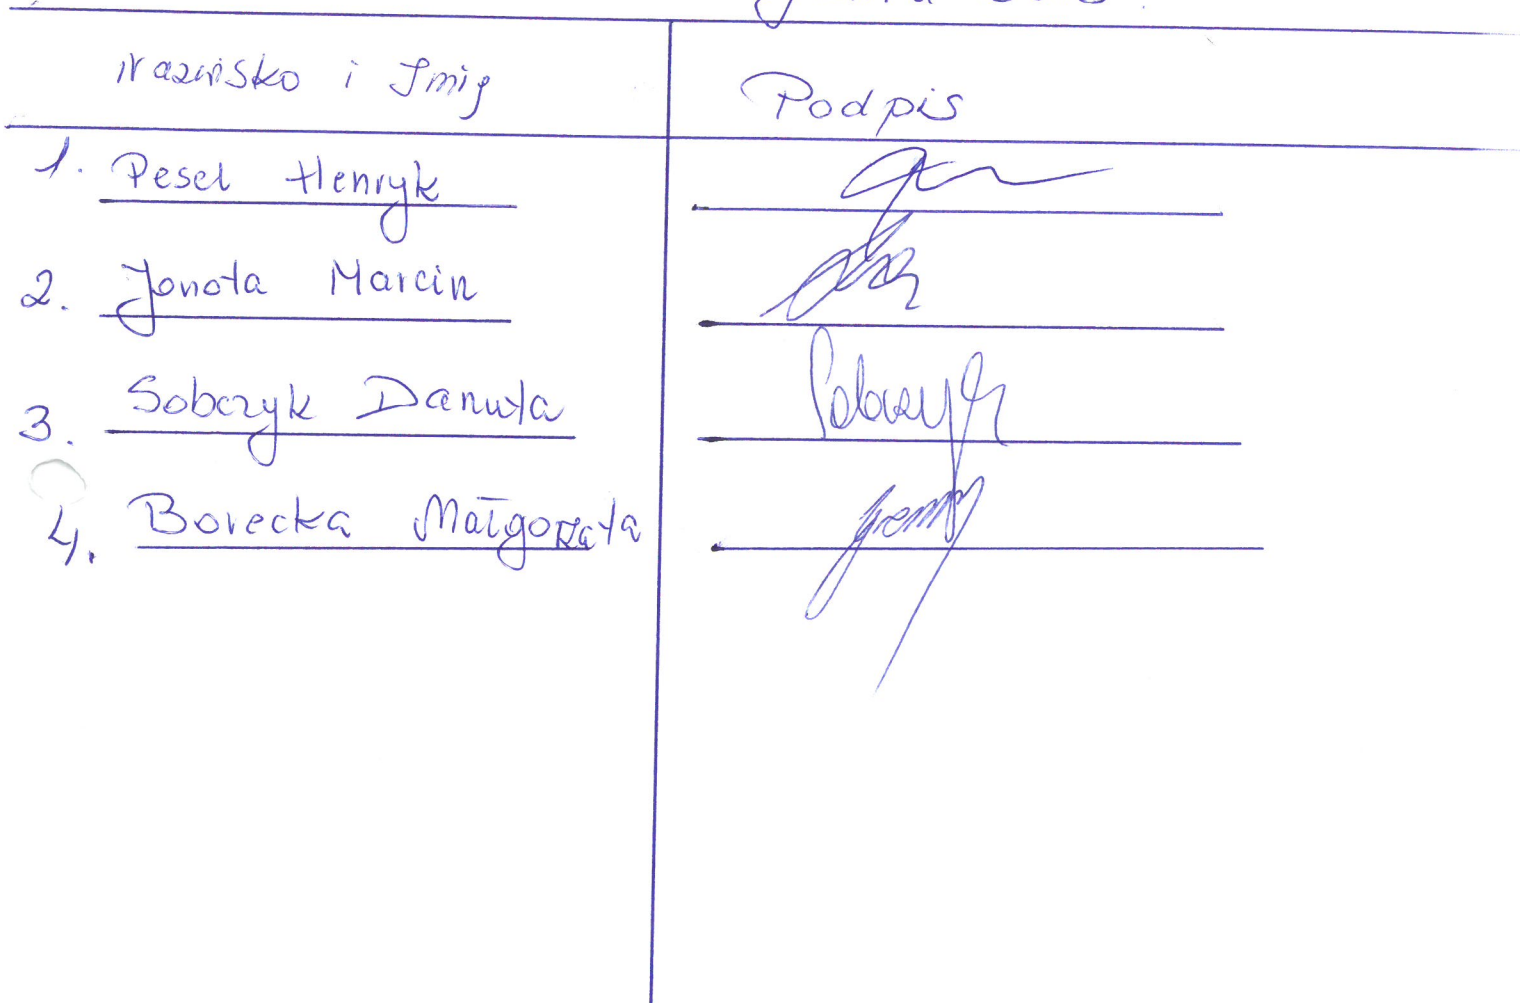 Nazwisko i Imię Podpis
1. Pesel Henryk
2. Jonota Marcin
3. Sobczyk Danuta Sobczyk
4. Borecka Małgorzata